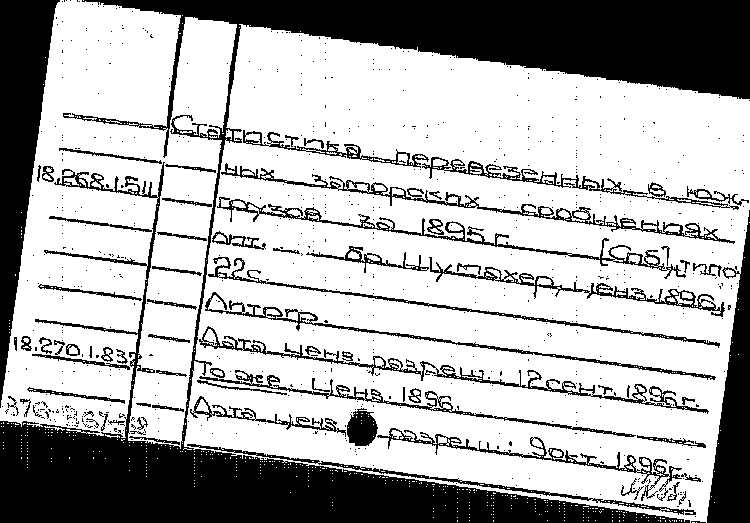 Статистика перевезенных в юж-
18.268.1.511 ных заморских сообщениях
грузов за 1895 г. [Спб], типо-
лит. бр. Шумахер, ценз. 1896.
22с.
Литогр.
Дата ценз. разреш.: 12 сент. 1896г.
18.270.1.832 То же. Ценз. 1896.
Дата ценз. разреш.: 9 окт. 1896г.